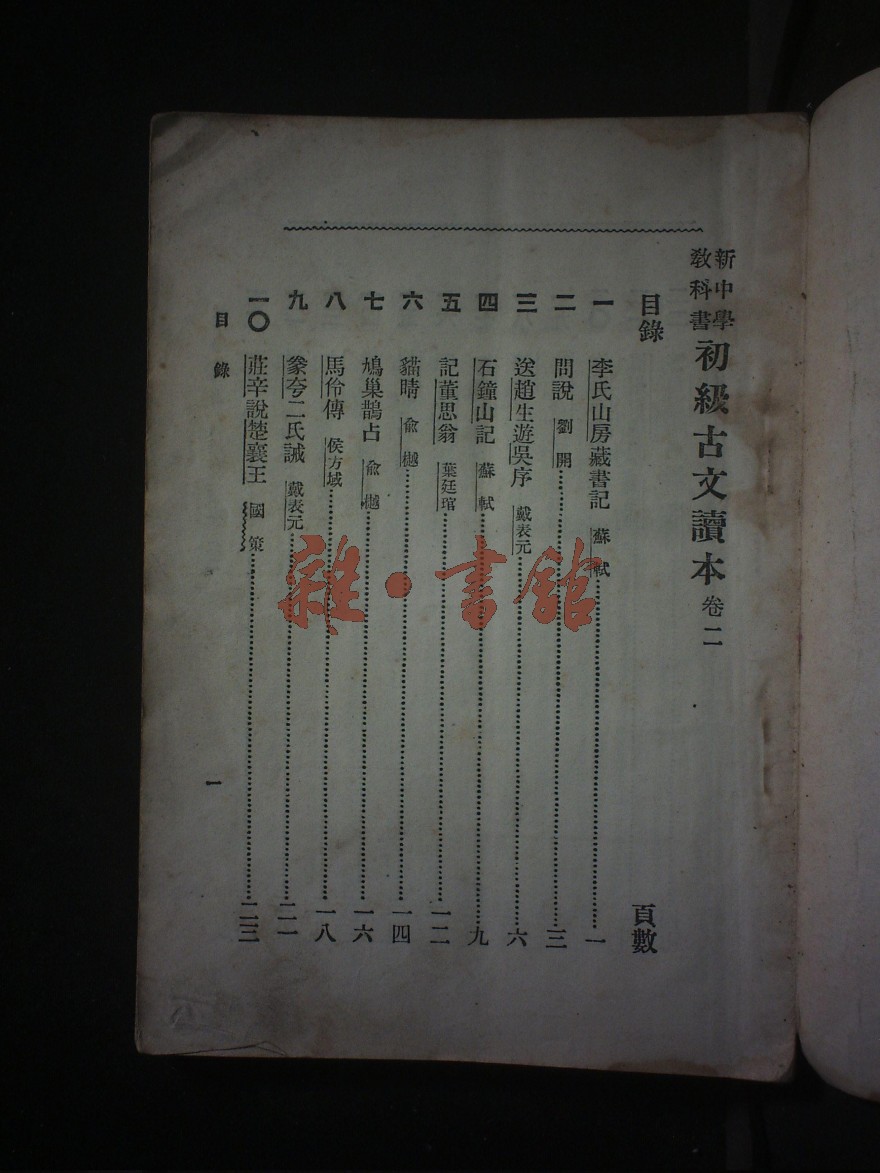 新中學
教科書
初級古文讀本 卷二
目錄 頁數
一 李氏山房藏書記 蘇軾 一
二 問說 劉開 三
三 送趙生遊吳序 戴表元 六
四 石鐘山記 蘇軾 九
五 記董思翁 葉廷琯 一二
六 貓晴 俞樾 一四
七 鳩巢鵲占 俞樾 一六
八 馬伶傳 侯方域 一八
九 豢夸二氏誡 戴表元 二一
一〇 莊辛說楚襄王 國策 二三
目錄 一
雜·書館